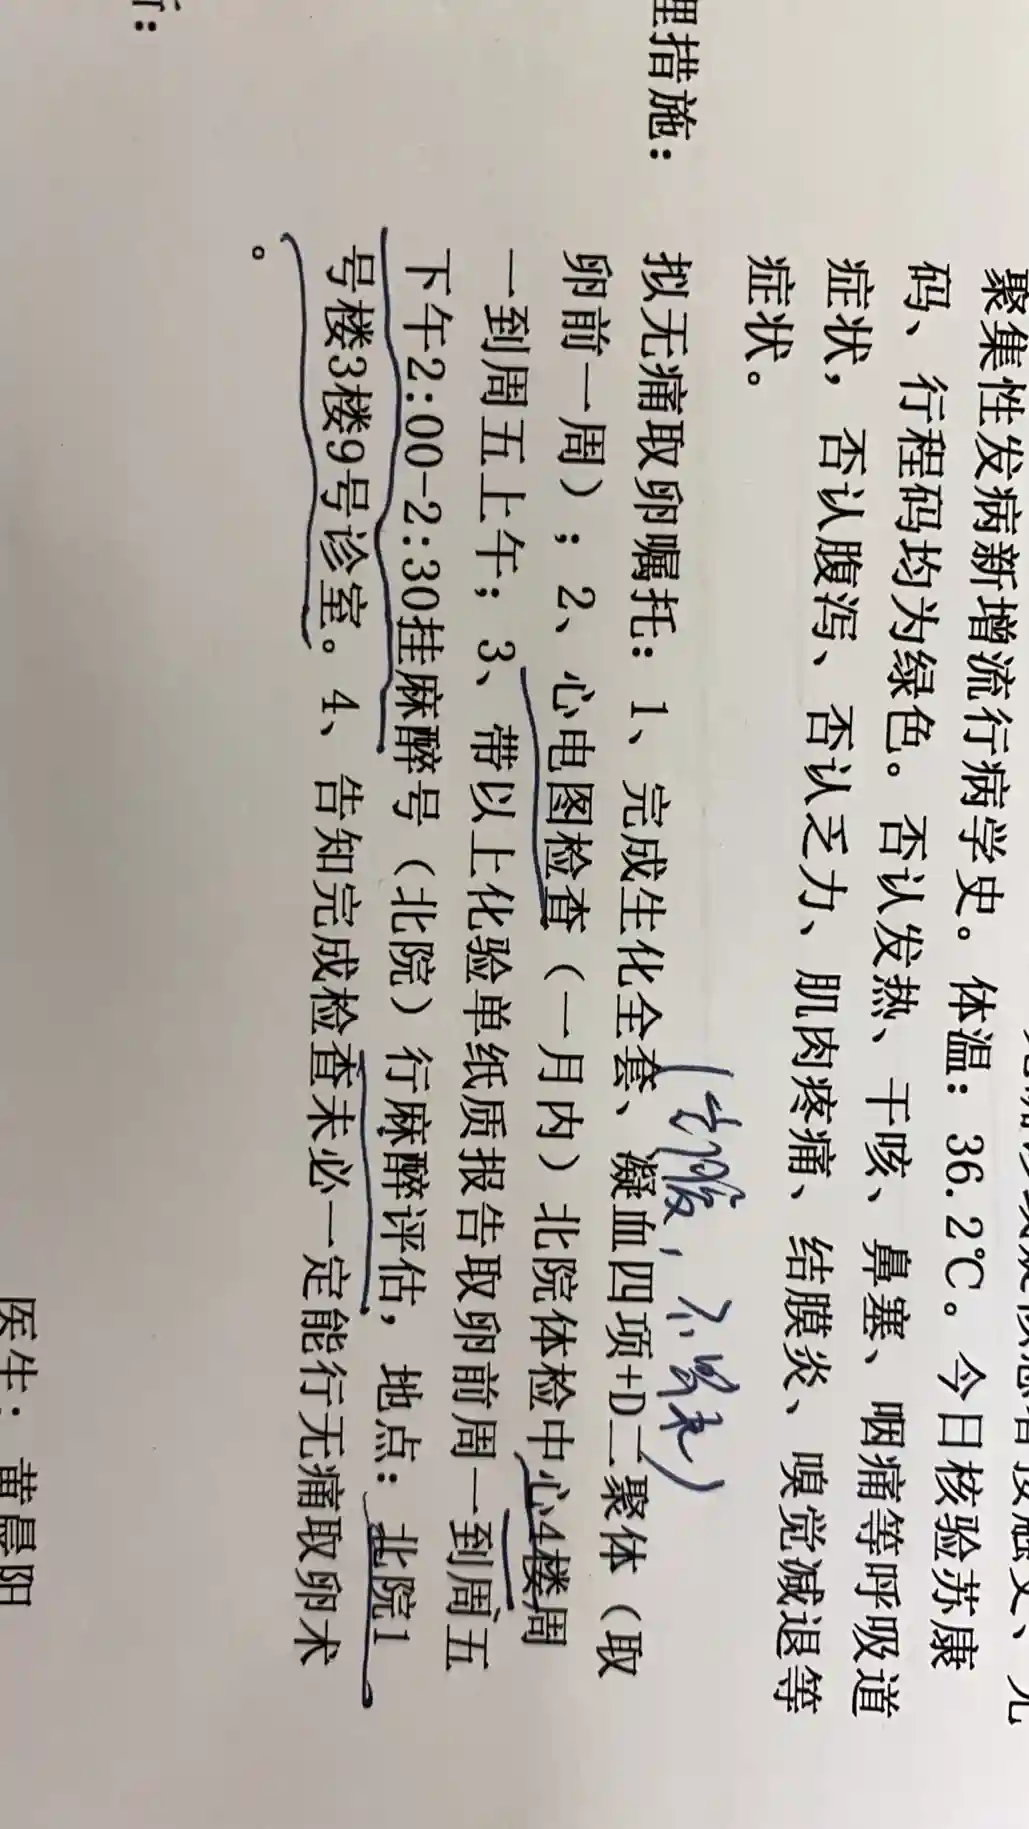 聚集性发病新增流行病学史。体温：36.2℃。今日核验苏康
码、行程码均为绿色。否认发热、干咳、鼻塞、咽痛等呼吸道
症状，否认腹泻、否认乏力、肌肉疼痛、结膜炎、嗅觉减退等
症状。
理措施：
(空腹，不喝水)
拟无痛取卵嘱托：1、完成生化全套、凝血四项+D二聚体（取
卵前一周）；2、心电图检查（一月内）北院体检中心4楼周
一到周五上午；3、带以上化验单纸质报告取卵前周一到周五
下午2:00-2:30挂麻醉号（北院）行麻醉评估，地点：北院1
号楼3楼9号诊室。4、告知完成检查未必一定能行无痛取卵术
。
医生：黄晨阳